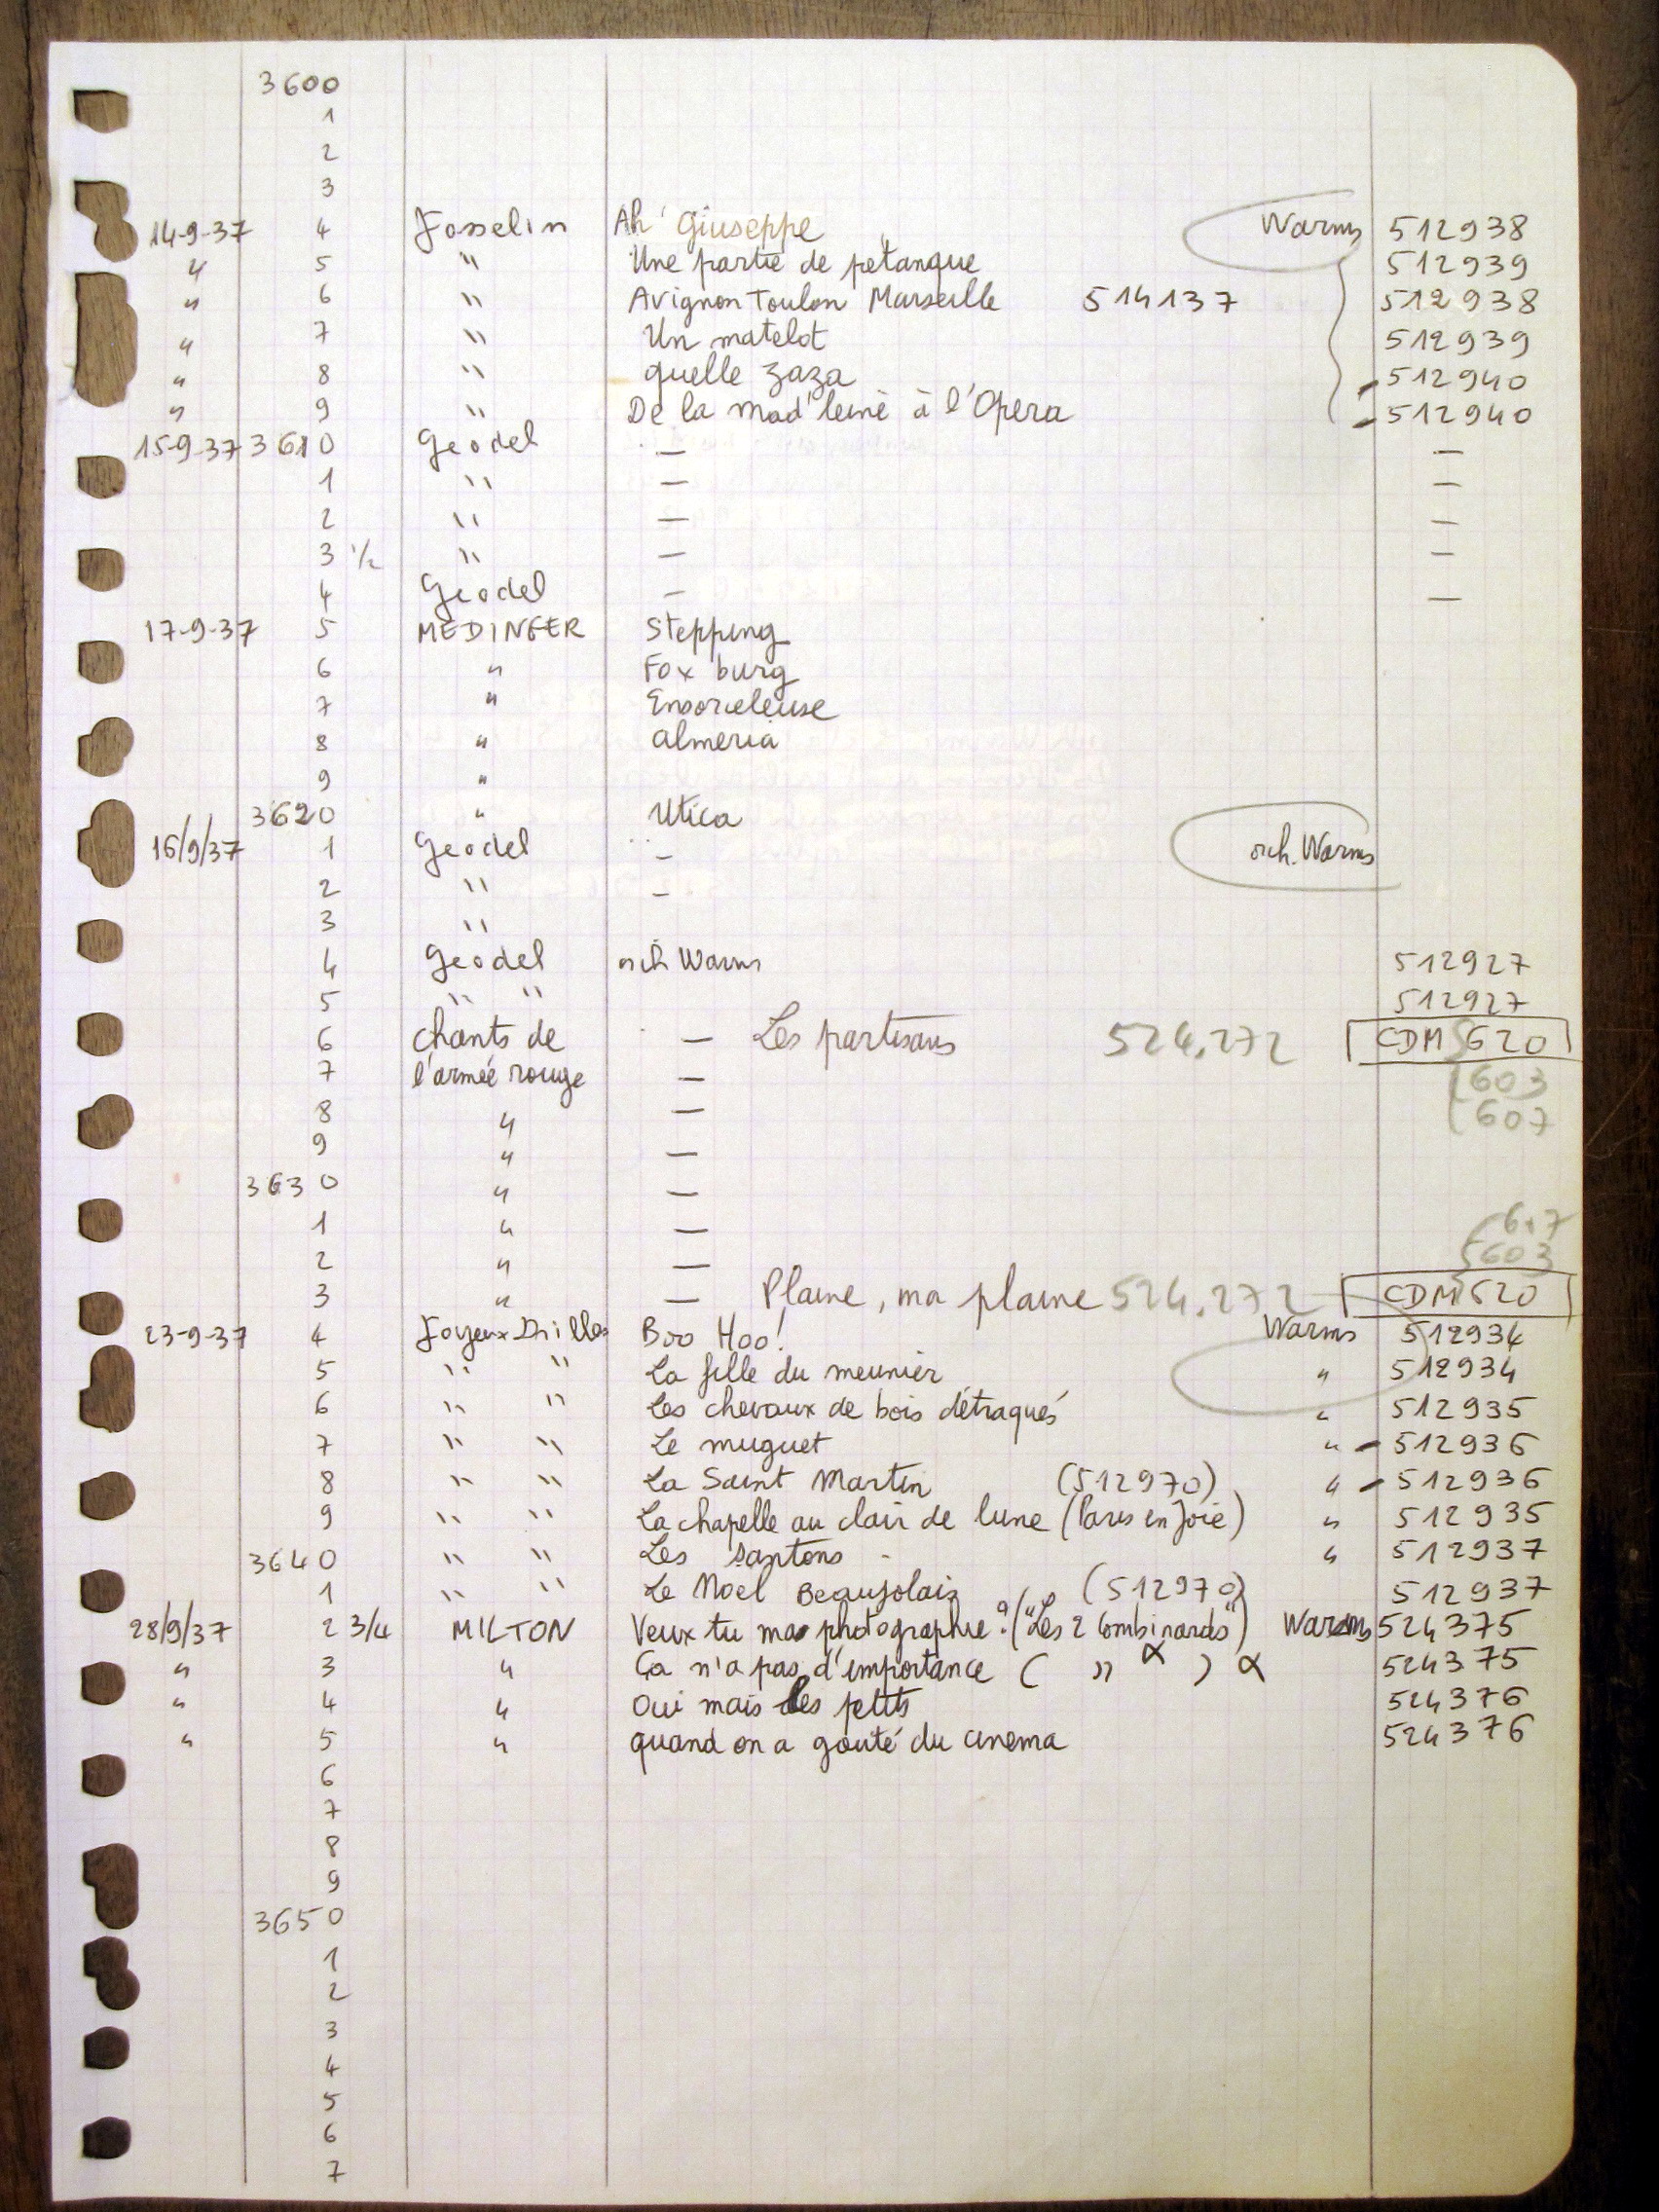 3600
1
2
3
14-9-37 4 Josselin Ah' Giuseppe Warms 512938
" 5 " Une partie de pétanque 512939
" 6 " Avignon Toulon Marseille 514137 512938
" 7 " Un matelot 512939
" 8 " quelle zaza 512940
" 9 " De la Mad'leine à l'Opera 512940
15-9-37 3610 Geodel — —
1 " — —
2 " — —
3 1/2 " — —
4 Geodel — —
17-9-37 5 MEDINGER Stepping
6 " Fox burg
7 " Ensorceleuse
8 " Almeria
9 "
3620 " Utica
16/9/37 1 Geodel — orch. Warms
2 " —
3 "
4 Geodel orch Warms 512927
5 " " 512927
6 chants de — Les partisans 524.272 CDM 620
7 l'armée rouge — 603
8 " — 607
9 " —
3630 " —
1 " — 617
2 " — 603
3 " — Plaine, ma plaine 524.272 CDM 620
23-9-37 4 Joyeux Drilles Boo Hoo! Warms 512934
5 " " La fille du meunier " 512934
6 " " Les chevaux de bois détraqués " 512935
7 " " Le muguet " - 512936
8 " " La Saint Martin (512970) " - 512936
9 " " La chapelle au clair de lune (Paris en Joie) " 512935
3640 " " Les santons " 512937
1 " " Le Noël Beaujolais (512970) 512937
28/9/37 2 3/4 MILTON Veux tu ma photographie? ("Les 2 Combinards") Warms 524375
" 3 " Ça n'a pas d'importance ( " α ) α 524375
" 4 " Oui mais les petits 524376
" 5 " quand on a gouté du cinema 524376
6
7
8
9
3650
1
2
3
4
5
6
7